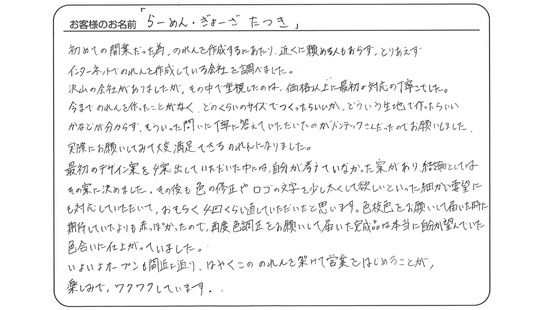 お客様のお名前 「らーめん・ぎょーざ たつき」
初めての開業だった為、のれんを作成するにあたり、近くに頼める人もおらず、とりあえず
インターネットでのれんを作成している会社を調べました。
沢山の会社がありましたが、その中で重視したのは、価格以上に最初の対応の丁寧さでした。
今までのれんを作ったことがなく、どのくらいのサイズでつくったらいいか、どういう生地で作ったらいい
かなどが分からず、そういった問いに丁寧に答えていただいたのがバンテックさんだったのでお願いしました。
実際にお願いしてみて大変満足できるのれんになりました。
最初のデザイン案を4案出していただいた中には、自分が考えていなかった案があり、結論としては
その案に決めました。その後も色の修正やロゴの文字を少し太くして欲しいといった細かい要望に
も対応していただいて、おそらく4回くらい直していただいたと思います。色校色をお願いして届いた時に
期待していたよりも赤っぽかったので、再度色調正をお願いして届いた完成品は本当に自分が望んでいた
色合いに仕上がっていました。
いよいよオープンも間近に迫り、はやくこののれんを架けて営業をはじめることが、
楽しみで、ワクワクしています。